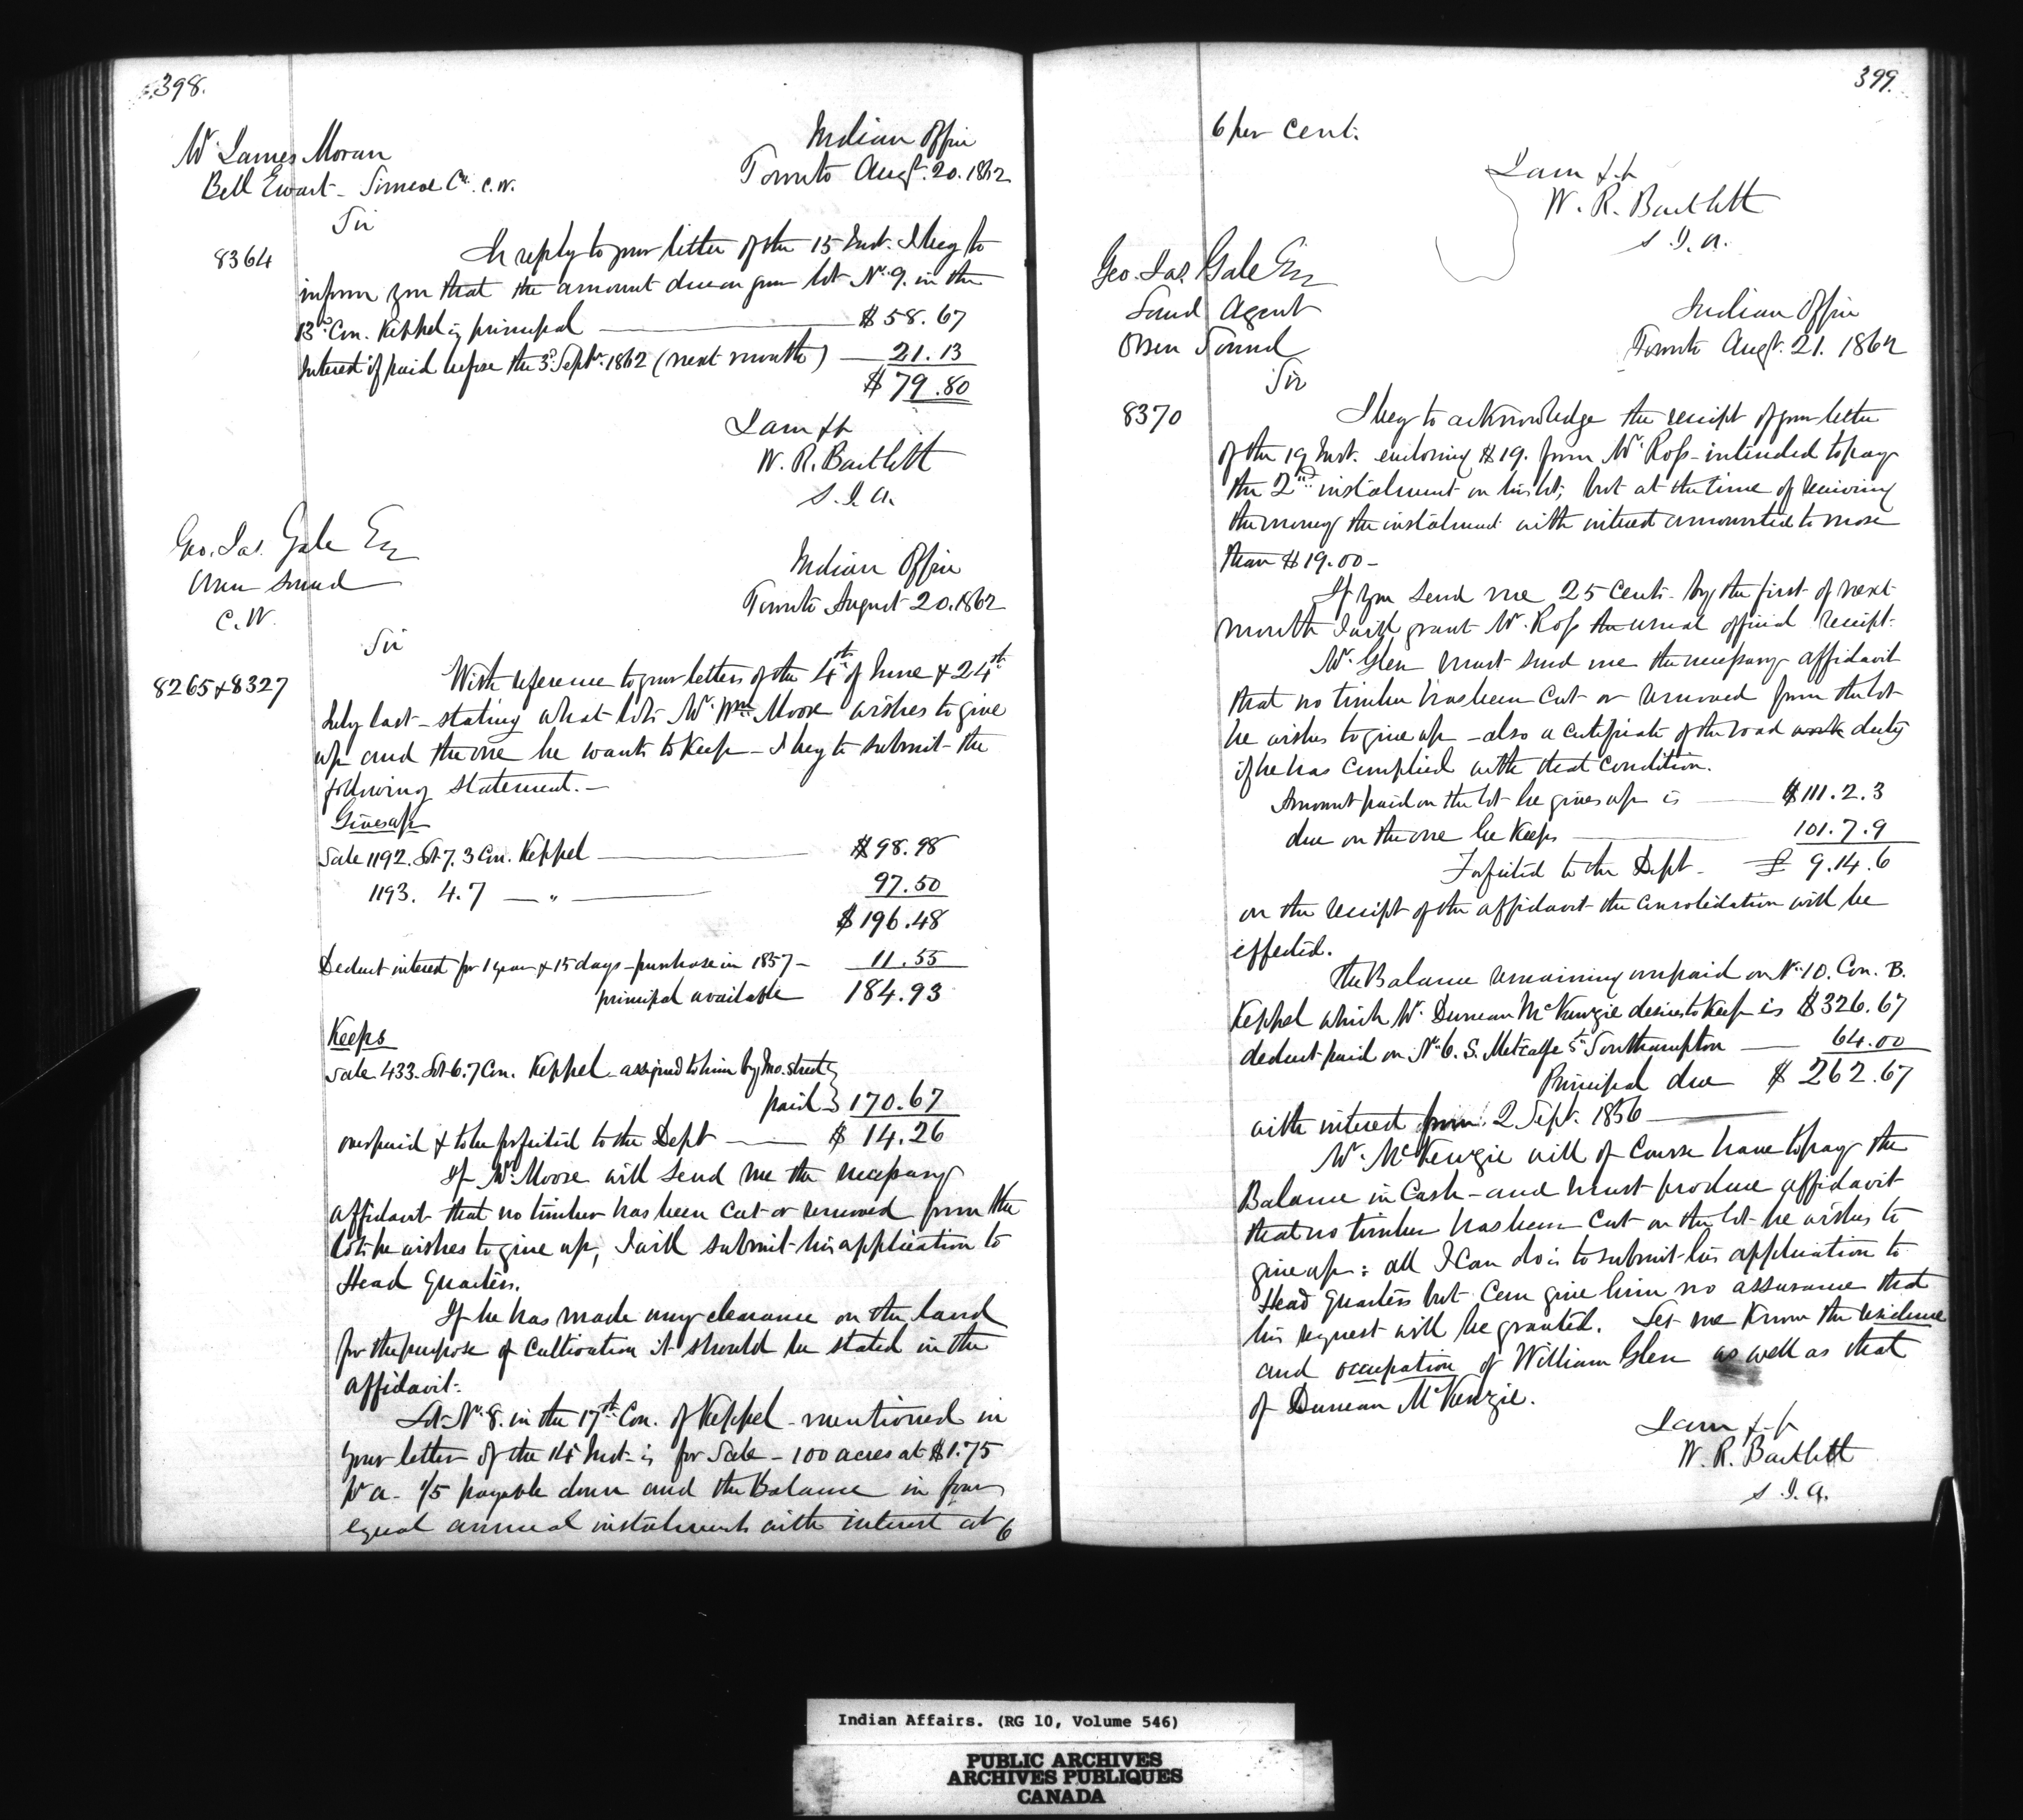 398.
Mr. James Moran
Bell Ewart - Simcoe Co. C.W.
Indian Office
Toronto Augt. 20. 1862
Sir
8364
In reply to your letter of the 15 Inst. I beg to
inform you that the amount due on your lot No. 9. in the
13th Con. Keppel is principal $58.67
Interest if paid before the 3d. Septr. 1862 (next month) 21.13
$79.80
I am &c
W. R. Bartlett
S. I. A.
Geo. Jas. Gale Esq
Owen Sound
C.W.
Indian Office
Toronto August 20. 1862
Sir
8265 & 8327
With reference to your letters of the 4th of June & 24th
July last - stating what lots Mr. Wm. Moore wishes to give
up and the one he wants to keep - I beg to submit the
following statement. -
Gives up
Sale 1192. Lot 7. 3 Con. Keppel $98.98
1193. 4. 7 — " — 97.50
$196.48
Deduct interest for 1 year & 15 days - purchase in 1857 - 11.55
principal available 184.93
Keeps
Sale 433. Lot 6. 7 Con. Keppel - assigned to him by Jno. Street }
paid } 170.67
overpaid & to be forfeited to the Dept $14.26
If Mr. Moore will send me the necessary
affidavit that no timber has been cut or removed from the
lots he wishes to give up, I will submit his application to
Head Quarters.
If he has made any clearance on the land
for the purpose of cultivation it should be stated in the
affidavit.
Lot No. 8. in the 17th Con. of Keppel - mentioned in
your letter of the 14 Inst. is for Sale - 100 acres at $1.75
pr a. 1/5 payable down and the Balance in four
equal annual instalments with interest at 6
399.
6 per cent.
I am &c
W. R. Bartlett
S. I. A.
Geo. Jas. Gale Esq
Land Agent
Owen Sound
Indian Office
Toronto Augt. 21. 1862
Sir
8370
I beg to acknowledge the receipt of your letter
of the 19 Inst. enclosing $19. from Mr. Ross - intended to pay
the 2nd instalment on his lot; but at the time of receiving
the money the instalment with interest amounted to more
than $19.00 -
If you send me 25 cents by the first of next
month I will grant Mr. Ross the usual official receipt.
Mr. Glen must send me the necessary affidavit
that no timber has been cut or removed from the lot
he wishes to give up - also a certificate of the road work duty
if he has complied with that condition.
Amount paid on the lot he gives up is $111.2.3
due on the one he keeps 101.7.9
Forfeited to the Dept - £ 9.14.6
on the receipt of the affidavit the consolidation will be
effected.
The Balance remaining unpaid on No. 10. Con. B.
Keppel which Mr. Duncan McKenzie desires to keep is $326.67
deduct paid on No. 6. S. Metcalfe St. Southampton 64.00
Principal due $262.67
with interest from 2 Sept. 1856
Mr. McKenzie will of course have to pay the
Balance in Cash - and must produce affidavit
that no timber has been cut on the lot he wishes to
give up: all I can do is to submit his application to
Head Quarters but can give him no assurance that
his request will be granted. Let me know the residence
and occupation of William Glen as well as that
of Duncan McKenzie.
I am &c
W. R. Bartlett
S. I. A.
Indian Affairs. (RG 10, Volume 546)
PUBLIC ARCHIVES
ARCHIVES PUBLIQUES
CANADA